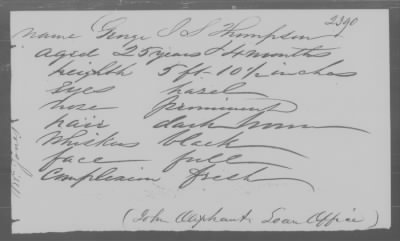 2390
name George I S Thompson
aged 25 years & 4 months
heighth 5 ft. 10 1/2 inches
eyes hazel
nose prominent
hair dark brown
Whiskers black
face full
Complexion fresh
(John Oliphants Loan Office)